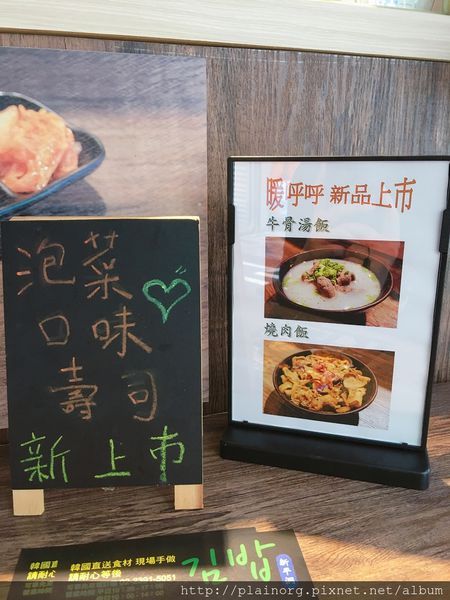 泡菜
口味
壽司
新上市
暖呼呼 新品上市
牛骨湯飯
燒肉飯
韓國直
請耐心
韓國直送食材 現場手做
請耐心等後
2291-5051
김밥
http://plainorg.pixnet.net/album